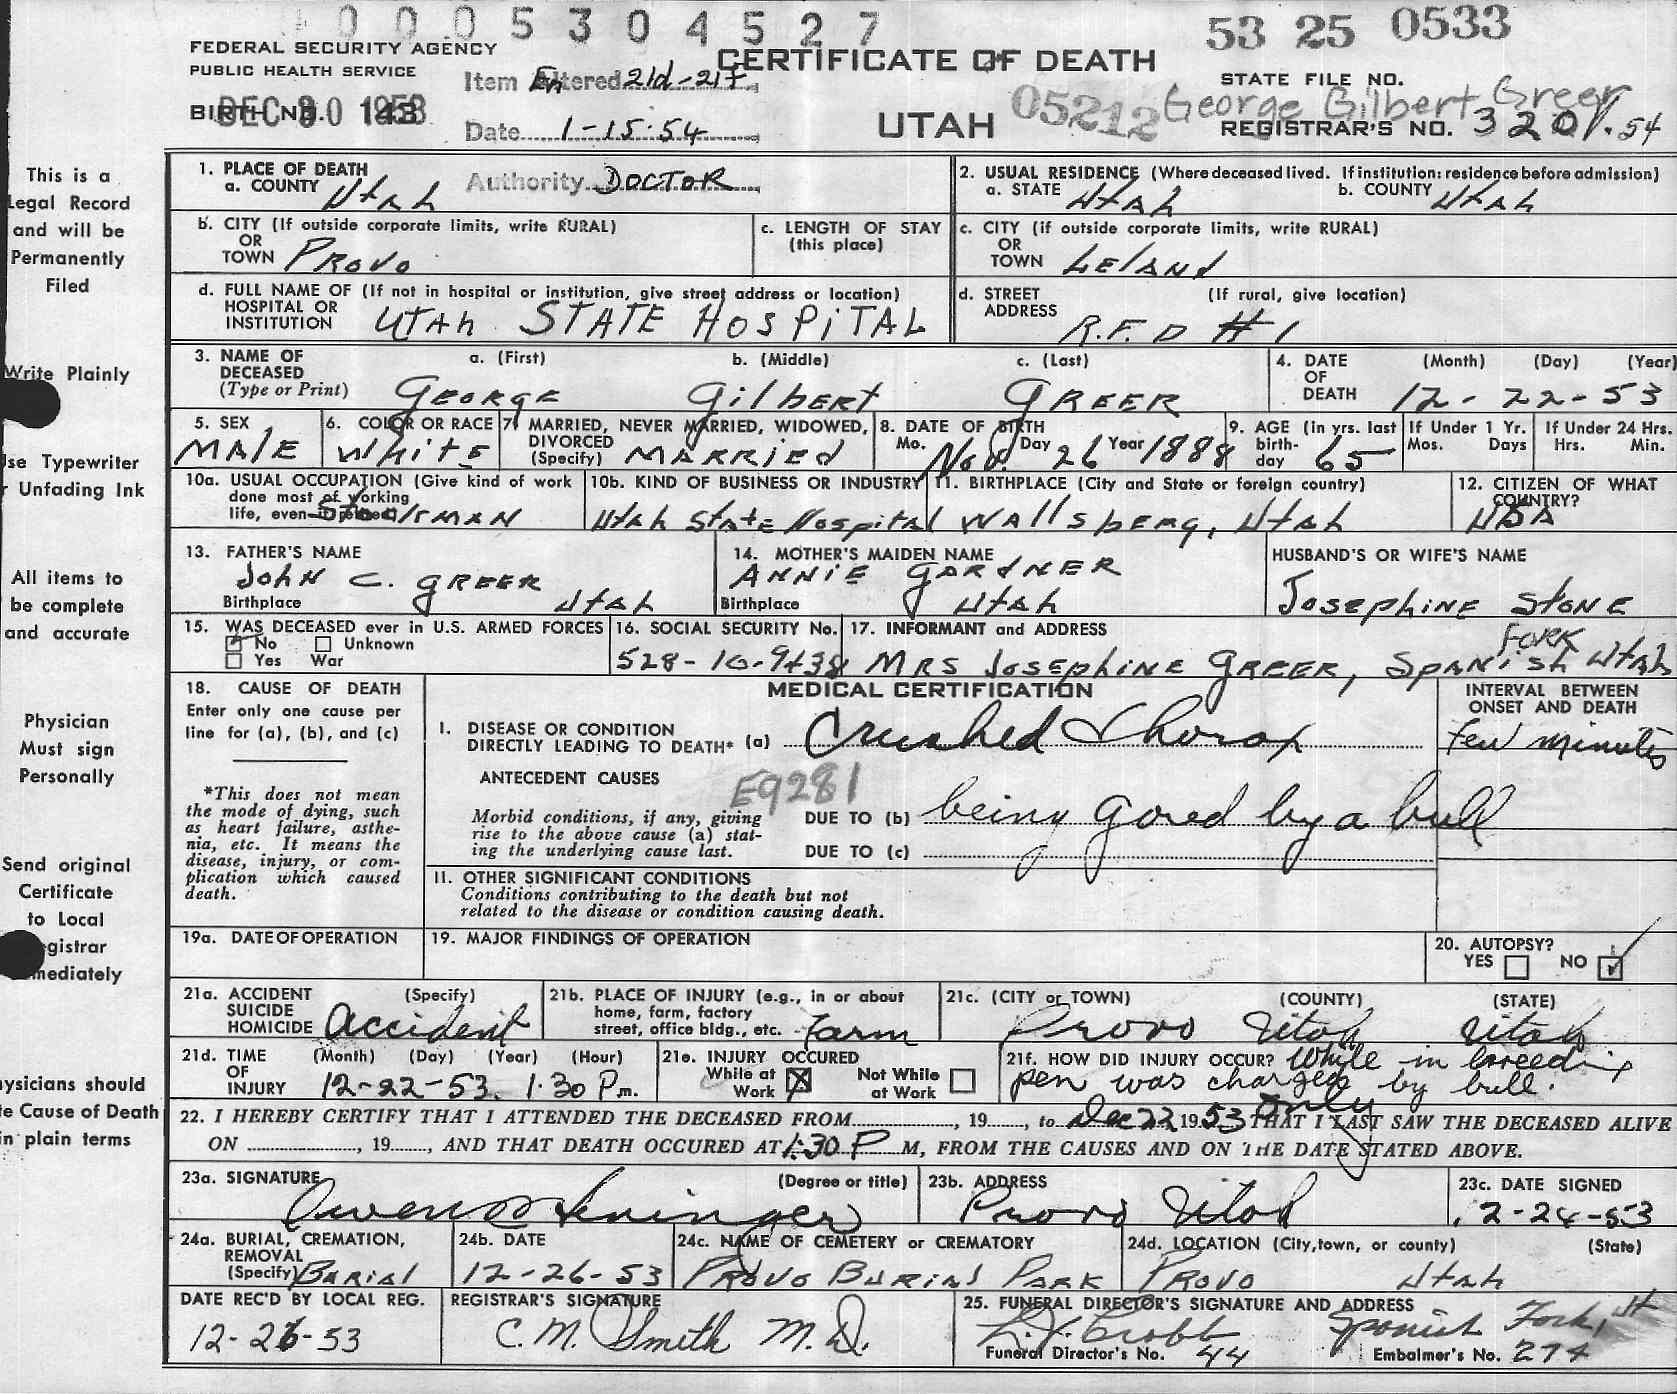 0005304527
53 25 0533
FEDERAL SECURITY AGENCY
PUBLIC HEALTH SERVICE
CERTIFICATE OF DEATH
UTAH
STATE FILE NO.
George Gilbert Greer
Item Altered 21d-21f
BIRTH NO. 143
DEC 30 1953
Date 1-15-54
05212
REGISTRAR'S NO. 320
Authority DOCTOR
This is a
Legal Record
and will be
Permanently
Filed
Write Plainly
Use Typewriter
r Unfading Ink
All items to
be complete
and accurate
Physician
Must sign
Personally
Send original
Certificate
to Local
egistrar
mmediately
hysicians should
te Cause of Death
in plain terms
1. PLACE OF DEATH
a. COUNTY Utah
2. USUAL RESIDENCE (Where deceased lived. If institution: residence before admission)
a. STATE Utah b. COUNTY Utah
b. CITY (If outside corporate limits, write RURAL)
OR
TOWN Provo
c. LENGTH OF STAY
(this place)
c. CITY (if outside corporate limits, write RURAL)
OR
TOWN Leland
d. FULL NAME OF (If not in hospital or institution, give street address or location)
HOSPITAL OR
INSTITUTION Utah STATE HOSPITAL
d. STREET (If rural, give location)
ADDRESS R.F.D #1
3. NAME OF DECEASED
(Type or Print)
a. (First) b. (Middle) c. (Last)
GEORGE GilbERT GREER
4. DATE OF DEATH (Month) (Day) (Year)
12-22-53
5. SEX
MALE
6. COLOR OR RACE
White
7. MARRIED, NEVER MARRIED, WIDOWED,
DIVORCED
(Specify) MARRIED
8. DATE OF BIRTH
Mo. Nov. Day 26 Year 1888
9. AGE (in yrs. last
birth-
day 65
If Under 1 Yr.
Mos. Days
If Under 24 Hrs.
Hrs. Min.
10a. USUAL OCCUPATION (Give kind of work
done most of working
life, even if retired)
10b. KIND OF BUSINESS OR INDUSTRY
Utah State Hospital
11. BIRTHPLACE (City and State or foreign country)
Wallsberg, Utah
12. CITIZEN OF WHAT
COUNTRY?
USA
13. FATHER'S NAME
John C. GREER
Birthplace Utah
14. MOTHER'S MAIDEN NAME
ANNIE GARDNER
Birthplace Utah
HUSBAND'S OR WIFE'S NAME
Josephine Stone
15. WAS DECEASED ever in U.S. ARMED FORCES
No Unknown
Yes War
16. SOCIAL SECURITY No.
528-10-9438
17. INFORMANT and ADDRESS
MRS Josephine GREER, SPANish FORK Utah
18. CAUSE OF DEATH
Enter only one cause per
line for (a), (b), and (c)
*This does not mean
the mode of dying, such
as heart failure, asthe-
nia, etc. It means the
disease, injury, or com-
plication which caused
death.
MEDICAL CERTIFICATION
INTERVAL BETWEEN
ONSET AND DEATH
I. DISEASE OR CONDITION
DIRECTLY LEADING TO DEATH* (a) Crushed Thorax
few minutes
ANTECEDENT CAUSES
E9281
Morbid conditions, if any, giving
rise to the above cause (a) stat-
ing the underlying cause last.
DUE TO (b) being gored by a bull
DUE TO (c)
11. OTHER SIGNIFICANT CONDITIONS
Conditions contributing to the death but not
related to the disease or condition causing death.
19a. DATE OF OPERATION
19. MAJOR FINDINGS OF OPERATION
20. AUTOPSY?
YES NO
21a. ACCIDENT
SUICIDE
HOMICIDE
(Specify)
Accident
21b. PLACE OF INJURY (e.g., in or about
home, farm, factory
street, office bldg., etc. Farm
21c. (CITY or TOWN) (COUNTY) (STATE)
Provo Utah Utah
21d. TIME
OF
INJURY
(Month) (Day) (Year) (Hour)
12-22-53 1:30 P m.
21e. INJURY OCCURED
While at
Work
Not While
at Work
21f. HOW DID INJURY OCCUR? While in breeding
pen was charged by bull.
22. I HEREBY CERTIFY THAT I ATTENDED THE DECEASED FROM , 19 , to Dec 22 1953 only THAT I LAST SAW THE DECEASED ALIVE
ON , 19 , AND THAT DEATH OCCURED AT 1:30 P M, FROM THE CAUSES AND ON THE DATE STATED ABOVE.
23a. SIGNATURE (Degree or title)
23b. ADDRESS
Provo Utah
23c. DATE SIGNED
12-24-53
24a. BURIAL, CREMATION,
REMOVAL
(Specify) Burial
24b. DATE
12-26-53
24c. NAME OF CEMETERY or CREMATORY
PROVO BURIAL PARK
24d. LOCATION (City, town, or county) (State)
PROVO Utah
DATE REC'D BY LOCAL REG.
12-26-53
REGISTRAR'S SIGNATURE
C. M. Smith M.D.
25. FUNERAL DIRECTOR'S SIGNATURE AND ADDRESS
Spanish Fork, Ut
Funeral Director's No. 44
Embalmer's No. 274